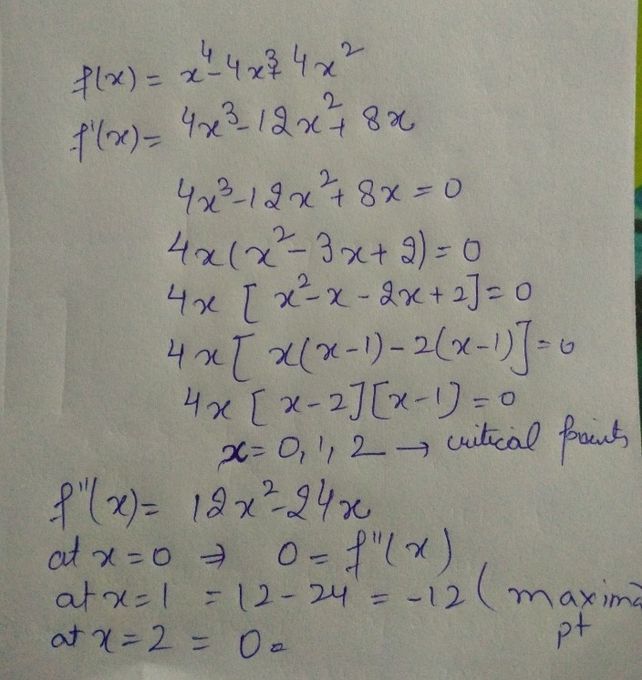 f(x) = x⁴-4x³+4x²
f'(x) = 4x³-12x²+8x
4x³-12x²+8x=0
4x(x²-3x+2)=0
4x[x²-x-2x+2]=0
4x[x(x-1)-2(x-1)]=0
4x[x-2][x-1]=0
x=0,1,2 → critical points
f''(x)= 12x²-24x
at x=0 ⇒ 0=f''(x)
at x=1 =12-24 = -12 (maxima
pt
at x=2 = 0=